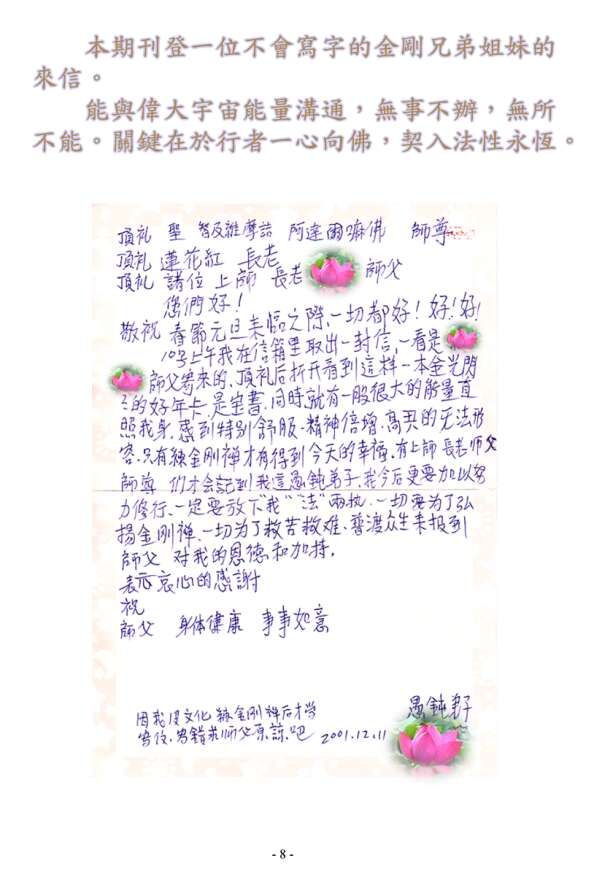 本期刊登一位不會寫字的金剛兄弟姐妹的
來信。
能與偉大宇宙能量溝通，無事不辦，無所
不能。關鍵在於行者一心向佛，契入法性永恆。
頂礼 聖 智及維摩詰 阿達爾嘛佛 師尊
頂礼 蓮花紅 長老
頂礼 諸位 上師 長老 師父
您們好！
敬祝 春節元旦来臨之際、一切都好！好！好！
10号上午我在信箱里取出一封信，一看是
師父寄來的、頂礼后拆开看到這样一本金光閃
的好年卡、是宝書、同時就有一股很大的能量直
照我身、感到特别舒服、精神倍增、高兴的无法形
容、只有練金剛禅才有得到今天的幸福、有上師 長老 师父
師尊 们才会記到我這愚鈍弟子、我今后更要加以努
力修行、一定要放下"我""法"兩执、一切要为了弘
揚金剛禅、一切为了救苦救难、普渡众生来报到
師父 对我的恩德和加持。
表示哀心的感謝
祝
師父 身体健康 事事如意
因我没文化 練金剛禅后才学
写信、寫錯我师父原諒吧 2001.12.11
愚鈍弟子
- 8 -